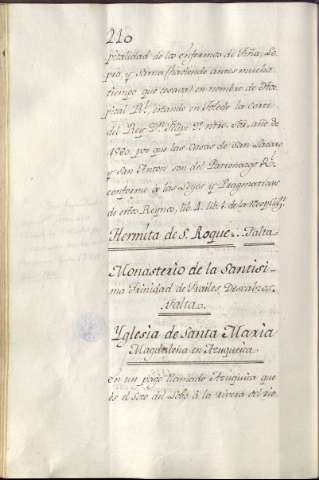 210
pitalidad de los enfermos de Tiña, Le-
pra, y Sarna (haviendo antes mucho
tiempo que cesava) en nombre de Hos-
pital Rl. estando en Toledo la Corte
del Rey Dn. Felipe 2º. ntro. Sor. año de
1560. por que las Casas de San Lazaro
y San Anton son del Patronazgo Rl.
conforme à las Leyes y Pragmaticas
de estos Reynos, lib. 1. tit. de la
Hermita de S. Roque. Falta
Monasterio de la Santisi-
ma Trinidad de Frailes Descalzos.
Falta.
Yglesia de Santa Maria
Magdalena en Azuqueica
En un pago llamado Azuqueica que
es el Soto del Lobo à la rivera del rio